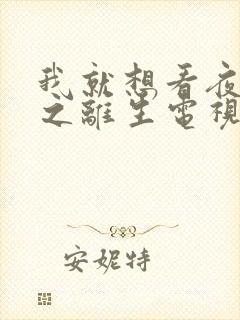 我就想看夜
之離生電視
安妮特